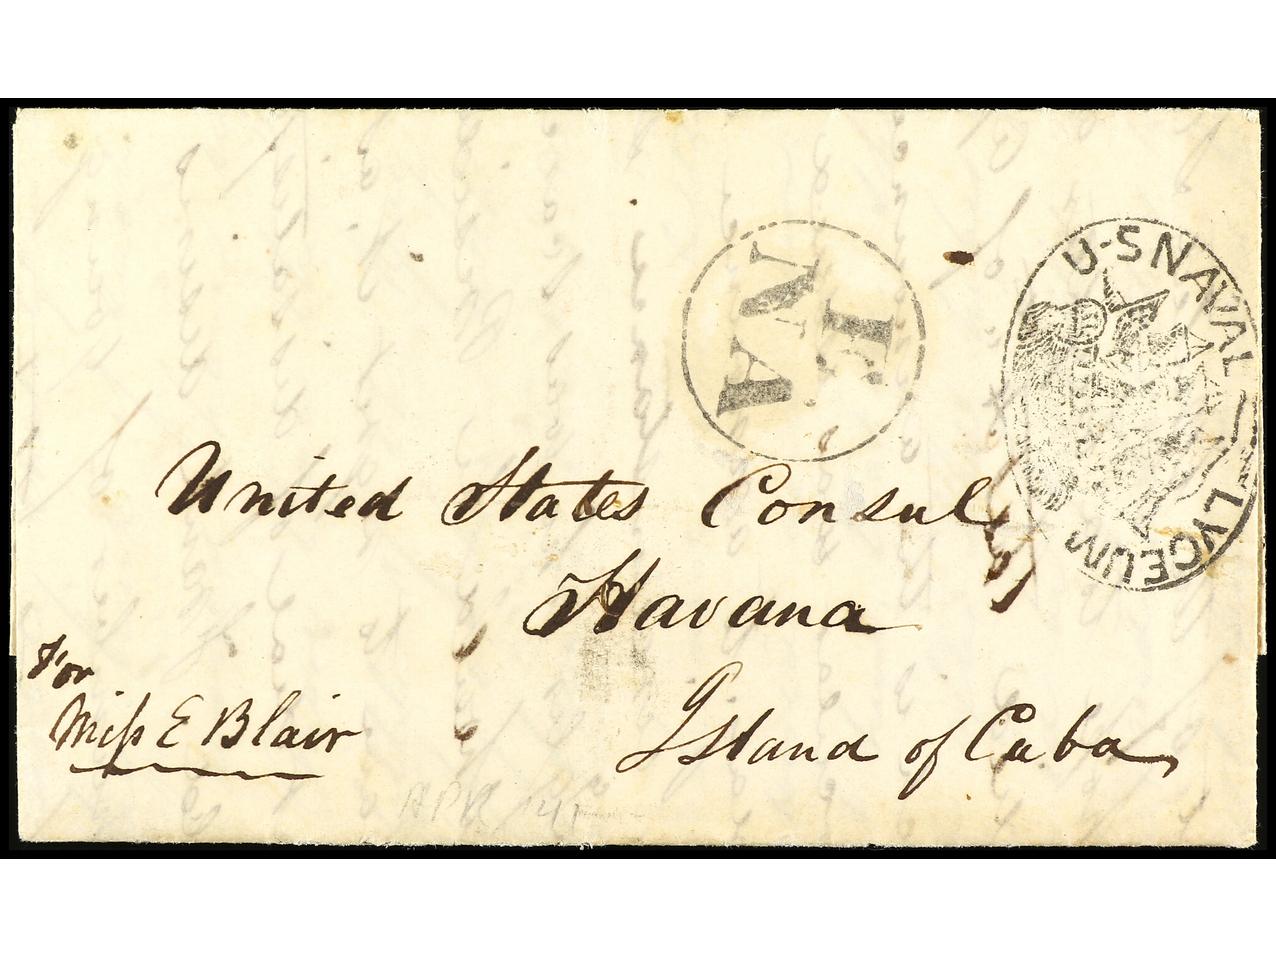 NA
E
U·S NAVAL LYCEUM
United States Consul
Havana
Island of Cuba,
For
Miſs E Blair
APR